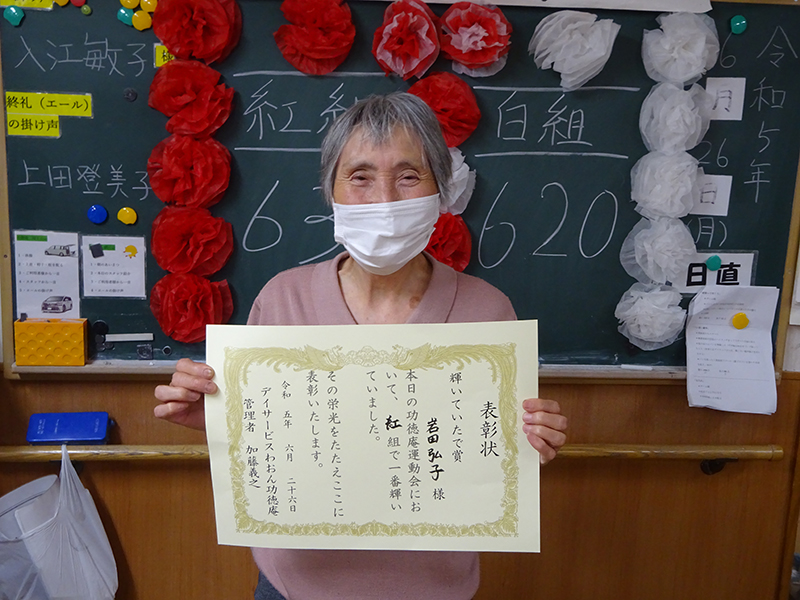 入江敏子
終礼（エール）
の掛け声
上田登美子
紅組
63
白組
620
令和5年
6月
26日
(月)
日直
表彰状
輝いていたで賞
岩田弘子 様
本日の功徳庵運動会にお
いて、紅組で一番輝い
ていました。
その栄光をたたえここに
表彰いたします。
令和 五年 六月 二十六日
デイサービスわおん功徳庵
管理者 加藤義之